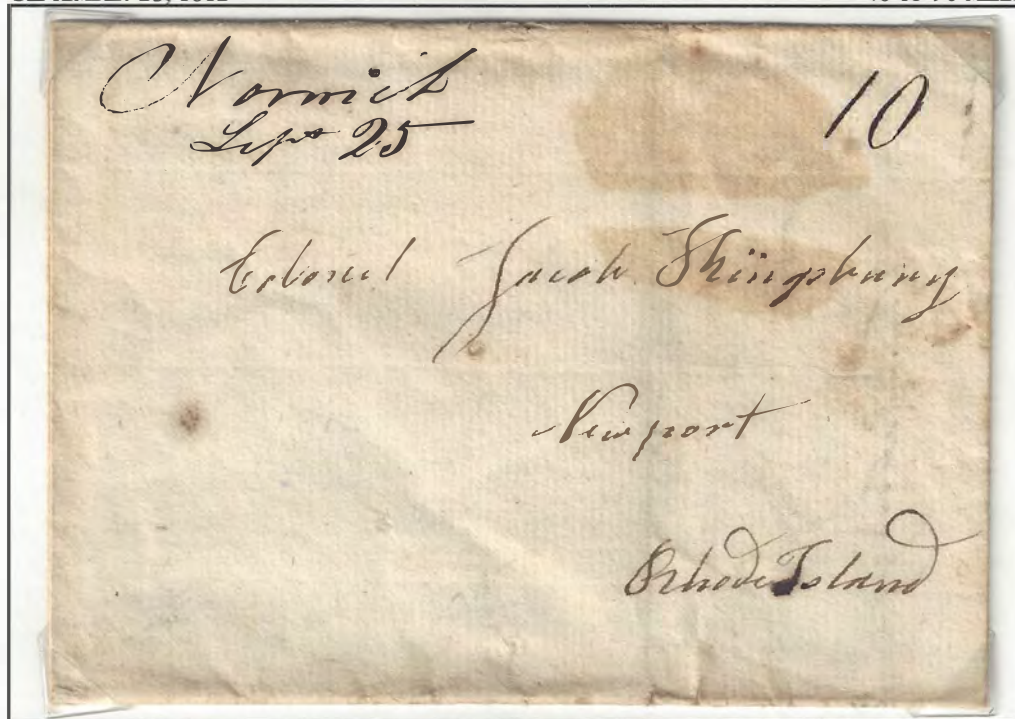 Norwich
Sept 25
10
Colonel Jacob Kingsbury
Newport
Rhode Island